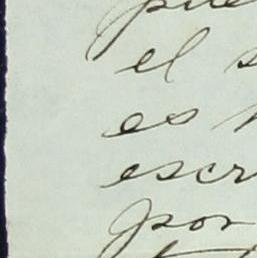 pue
el s
es
escr
por